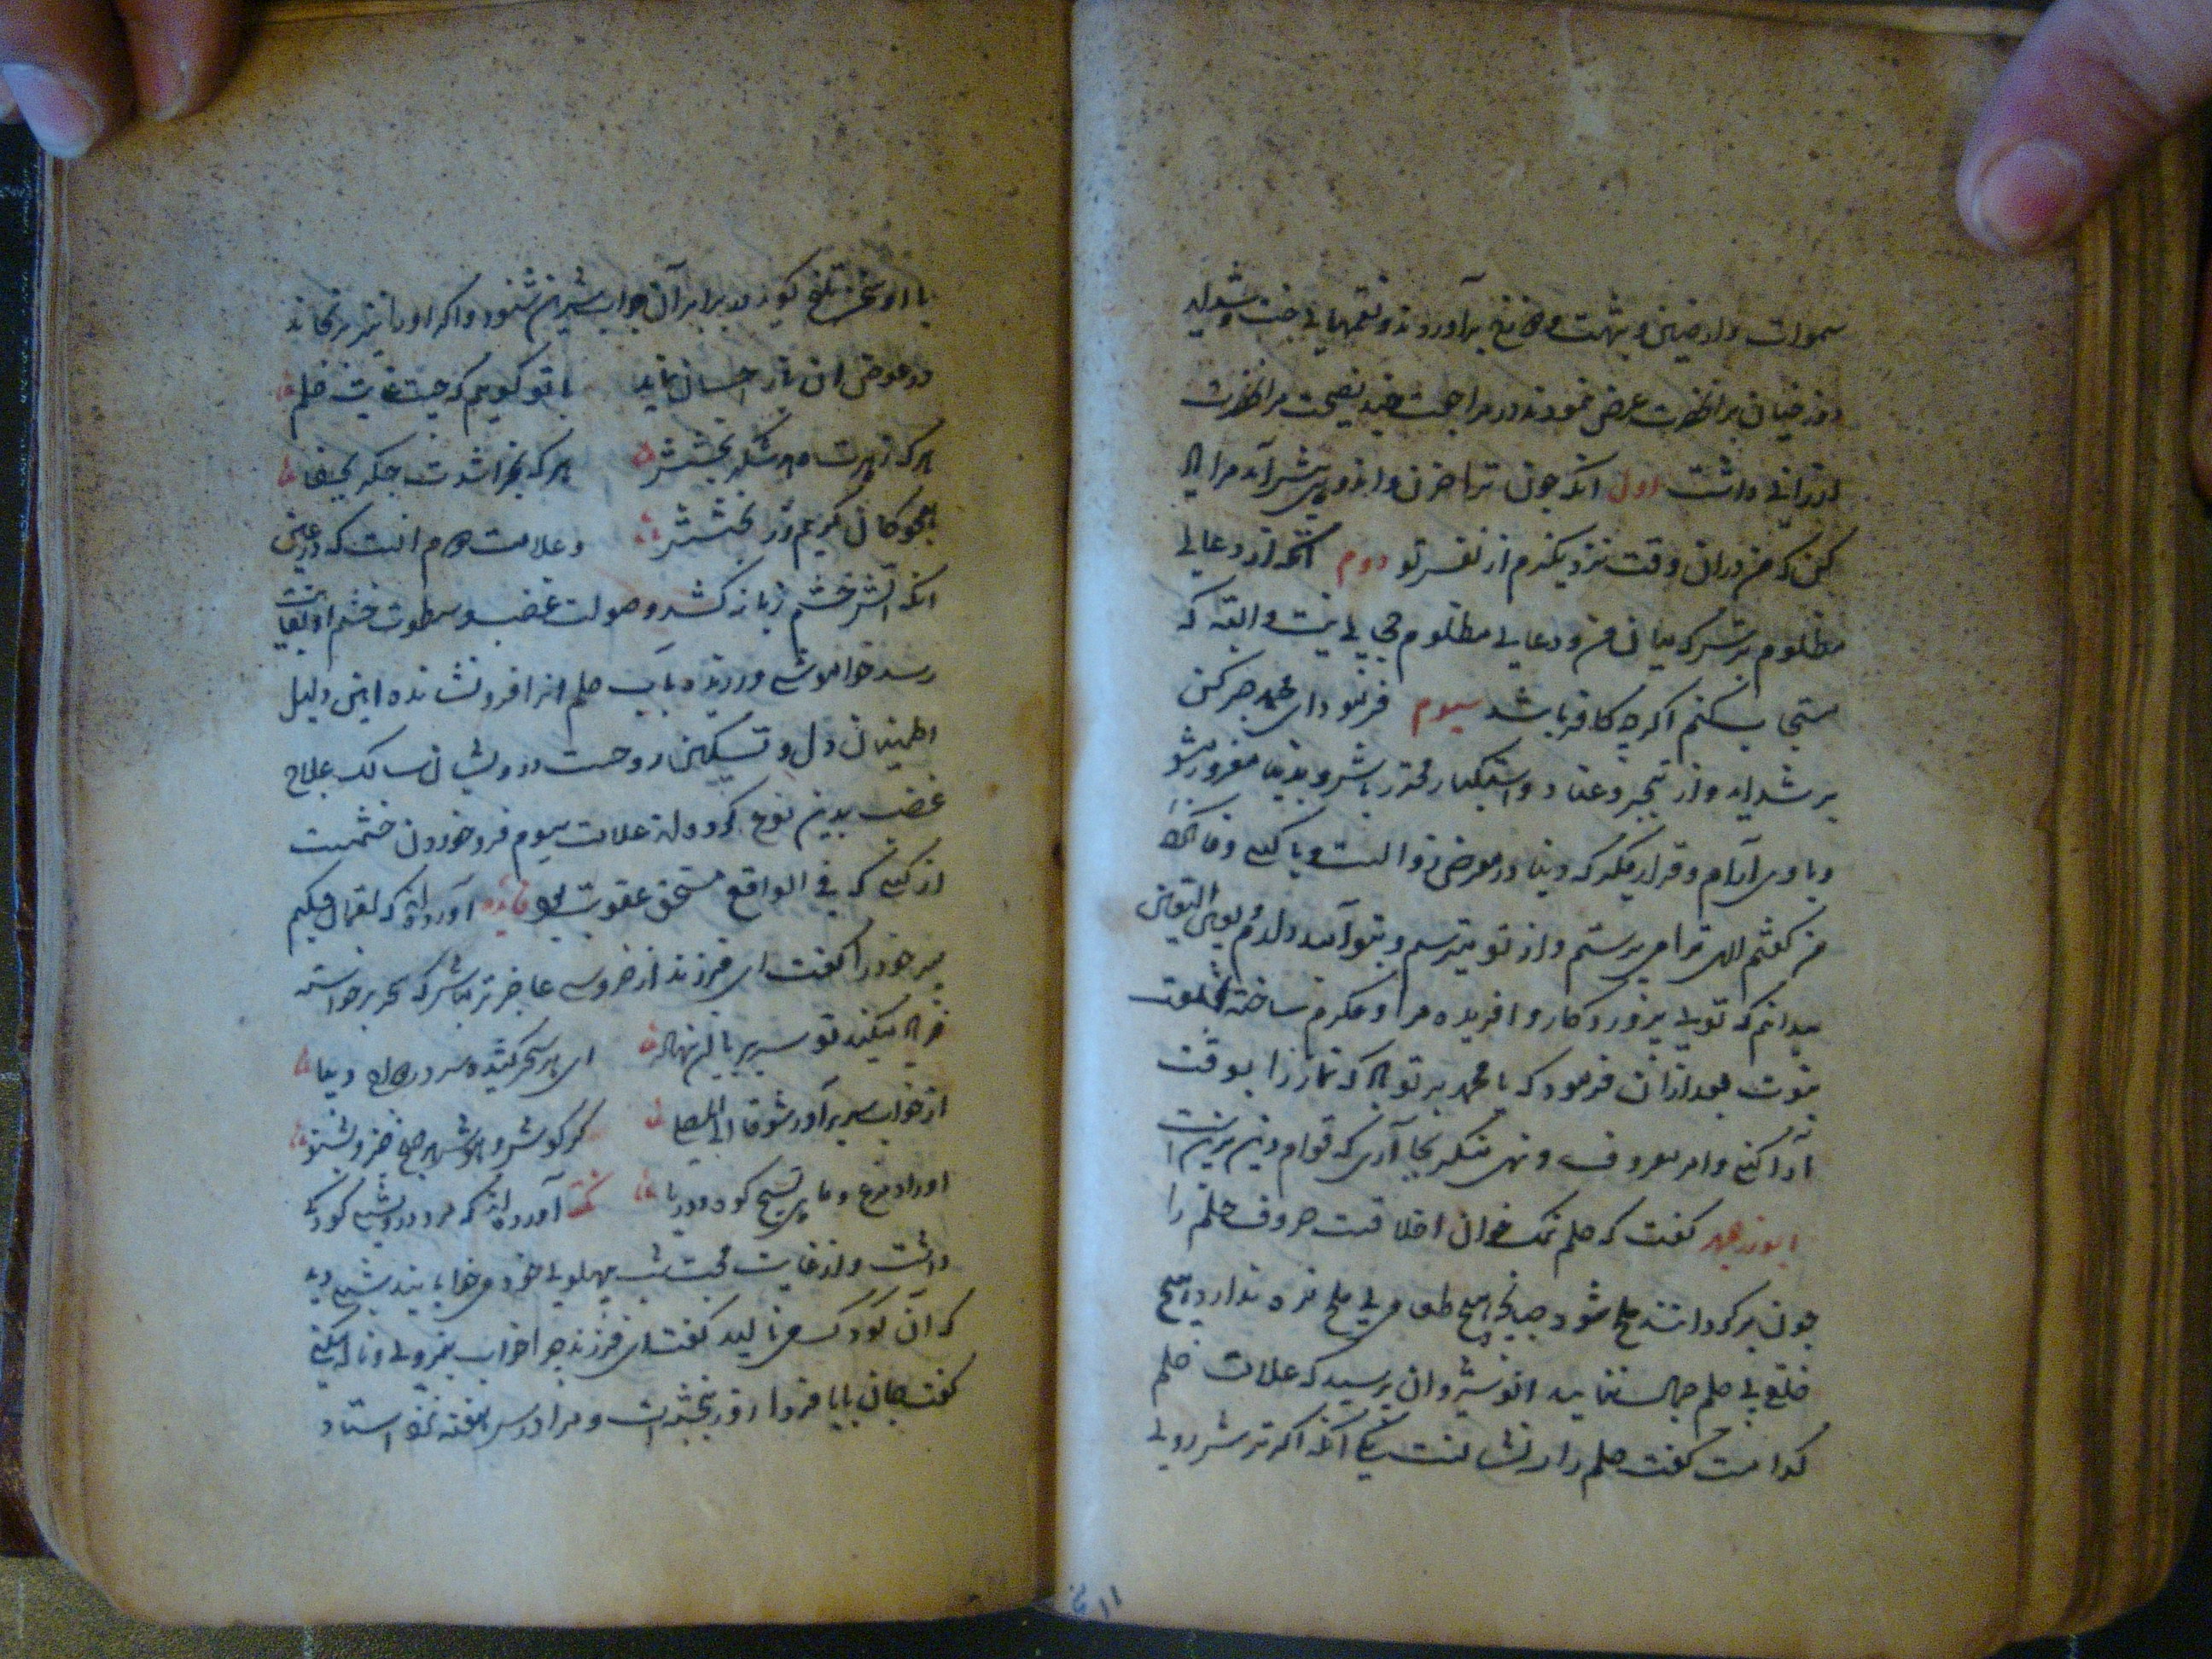 سموات و ارضین و بهشت و دوزخ برآوردند و نعمهای جنت و شداید
دوزخیان بر آنحضرت عرض نمودند در مراجعت چند نصیحت بر آنحضرت
ارزانی داشت اول آنکه چون ترا حزن و اندوهی پیش آید مرا یاد
کن که من در آن وقت نزدیکترم از نفس تو دوم آنکه از دعای
مظلوم بترس که میان من و دعای مظلوم حجابی نیست و البته که
مستجاب کنم اگرچه کافر باشد سیوم فرمود ای محمد صبر کن
بر شداید و از تجبر و عناد و استکبار محترز باش و بدنیا مغرور مشو
و با وی آرام و قرار مگیر که دنیا در معرض زوالست و با کسی وفا نکند
من گفتم الهی ترا می پرستم و از تو میترسم و بتو آمیدوارم و بعین الیقین
میدانم که تویی پروردگار و افریده مرا و مکرم ساختهٔ بخلعت
نبوت بعد از آن فرمود که یا محمد بر تو باد که نماز را بوقت
آدا کنی و امر معروف و نهی منکر بجا آری که قوام دین برین است
ابوزرجمهر گفت که حلم نمک خوان اخلاقست حروف حلم را
چون برگردانند ملح شود چنانچه هیچ طعامی بی ملح مزه ندارد هیچ
خلقی بی حلم جمال ننماید انوشیروان پرسید که علامت حلم
کدامست گفت حلم را سه نشانست یکی آنکه اگر ترش رویی
با او سخن تلخ گوید در برابر آن جواب شیرین شنود و اگر او را نیز برنجاند
در عوض آن باز احسان نماید با تو گویم که چیست غایت حلم
هر که زهرت دهد شکر بخشش هر که بخراشدت جگر بجفا
همچو کان کریم زر بخشش و علامت دوم آنست که در عین
آنکه آتش خشم زبانه کشد و صولت غضب و سطوت خشم او بغایت
رسد خواموشی ورزیده بآب حلم آنرا فرو نشانده این دلیل
اطمینان دل و تسکین روحست درویشان سالک علاج
غضب بدین نوع کرده اند علامت سیوم فرو خوردن خشمست
از کسی که فی الواقع مستحق عقوبت بود فایده آورده اند که لقمان حکیم
پسر خود را گفت ای فرزند از خروسی عاجزتر مباش که سحر برخواسته
ناله میکند تو سر ببالین نهاده ای هر سحر کشیده سر در ردای دیبا
از خواب سر برآور شوقا الی المصلی گر گوش و هوش داری هر صبح خیز و بشنو
اوراد مرغ و ماهی تسبیح کوه و دریا نکته آورده اند که مرد درویشی کودکی
داشت و از غایت محبت شب پهلوی خود می خوابانید شبی دید
که آن کودک می نالید گفت ای فرزند چرا خواب نمیروی و ناله میکنی
گفت جان بابا فردا روز پنجشنبه است و مرا درس هفته نزد استاد
۱۱